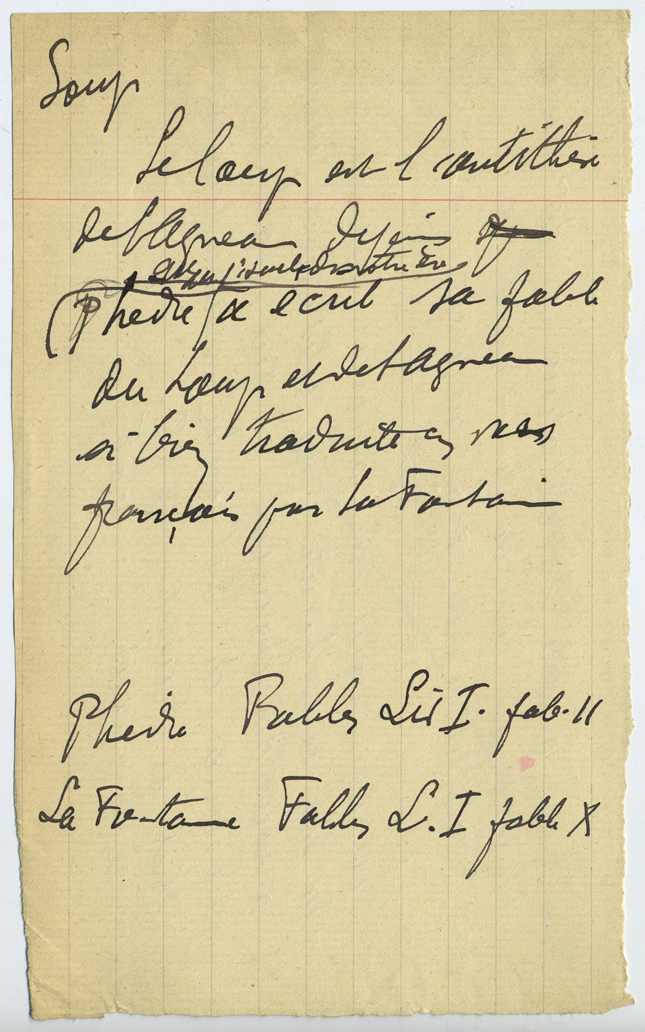 Loup
Le loup est l'antithèse
de l'Agneau depuis
au 1er siècle de notre ère
(Phèdre) a écrit sa fable
du Loup et de l'Agneau
si bien traduite en vers
français par La Fontaine
Phèdre Fables Liv I. fab. 11
La Fontaine Fables L. I fable X